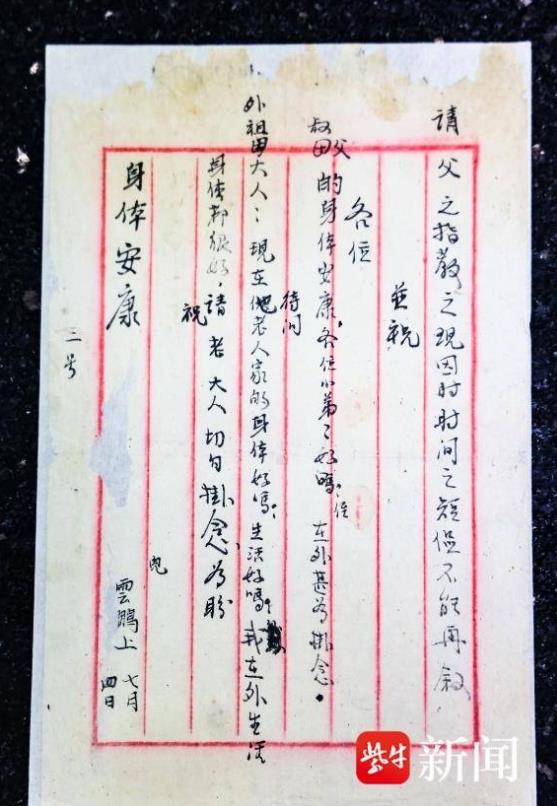 请父之指教之现因时时间之短促不能再叙
并祝
各位
叔父的身体安康,各位小弟二好吗;侄在外甚为掛念。
待问
外祖母大人:现在他老人家的身体好吗;生活好吗;我在外生活
身体都很好,请老大人切勿掛念为盼
祝
身体安康
雲鹏上
七月四日
三号
紫牛新闻